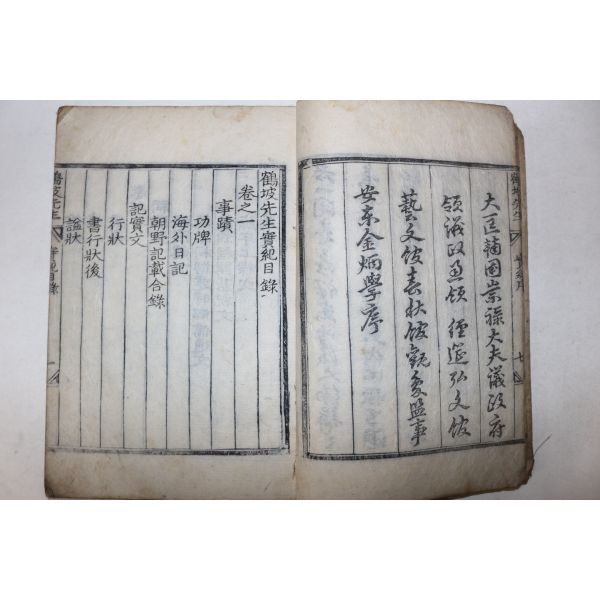 大匡輔國崇祿大夫議政府
領議政兼領 經筵弘文館
藝文館春秋館觀象監事
安東金炳學序
鶴坡先生
七
鶴坡先生實紀目錄
卷之一
事蹟
功牌
海外日記
朝野記載合錄
記實文
行狀
書行狀後
諡狀
鶴坡先生
實紀目錄
一